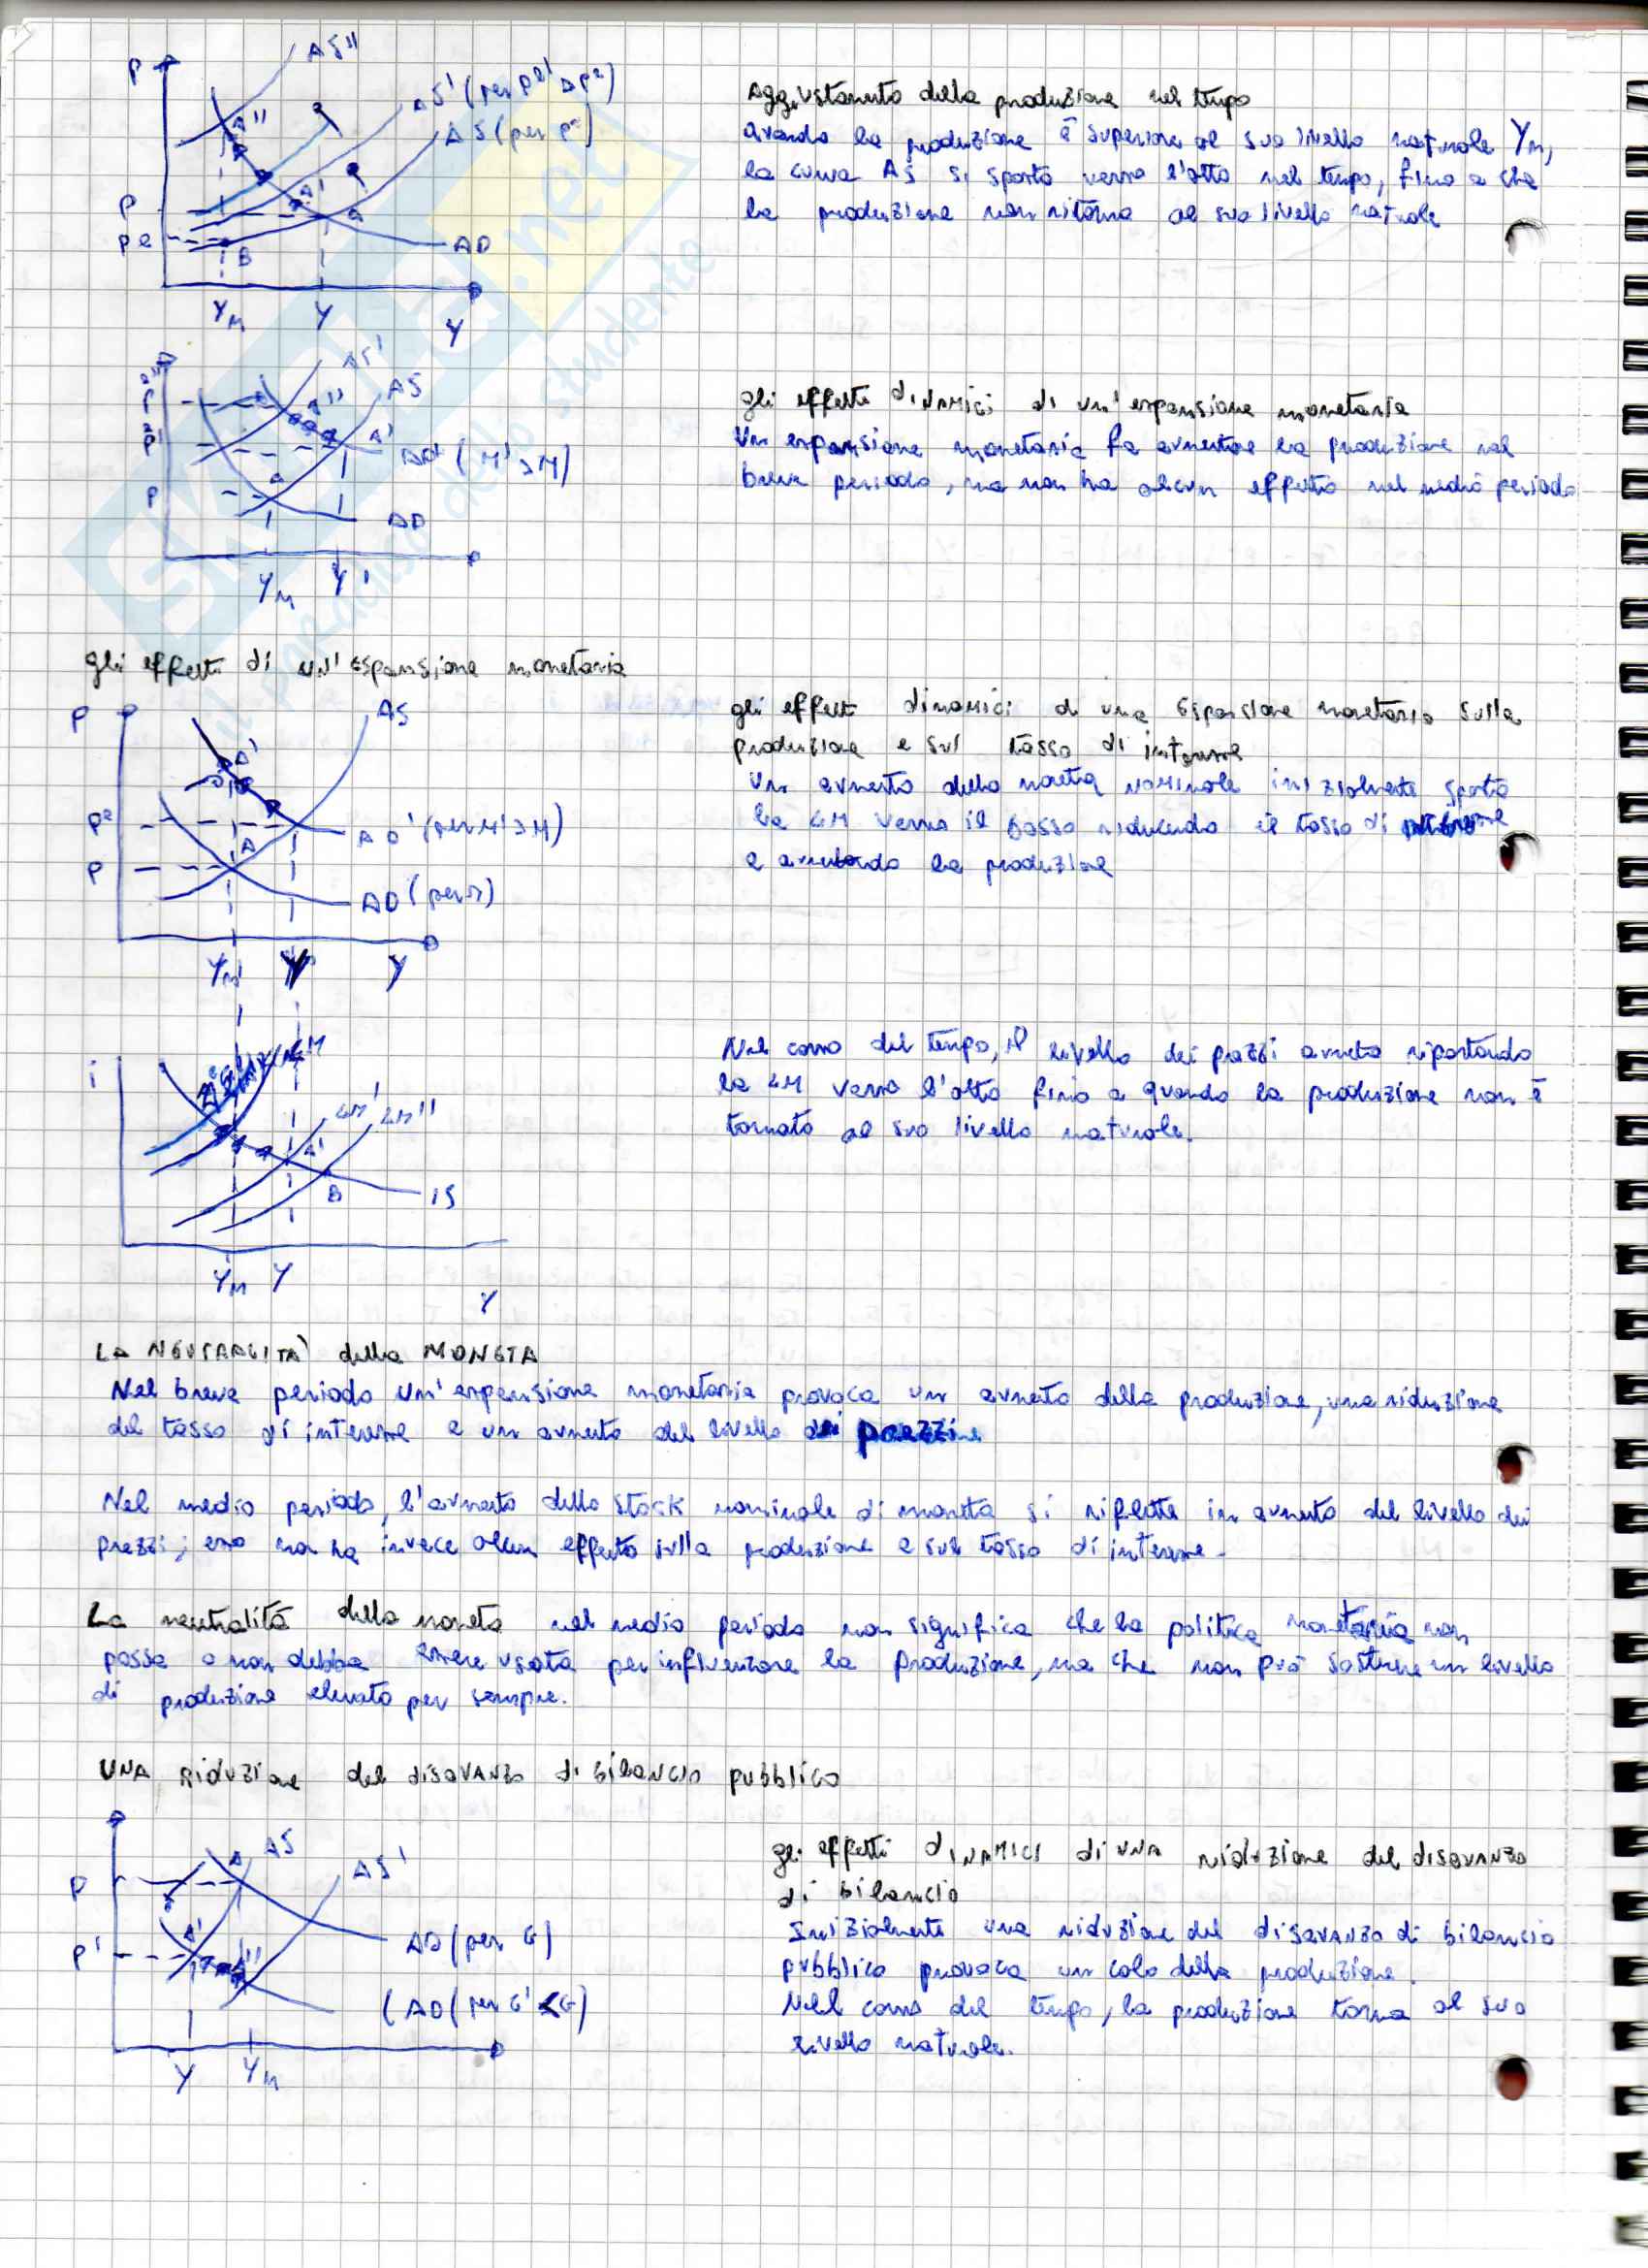 P
AS''
AS' (per P^e' > P^e)
AS (per P^e)
A''
A'
A
P
P^e
B
AD
Y_n
Y
Y
Aggiustamento della produzione nel tempo
Quando la produzione è superiore al suo livello naturale Y_n,
la curva AS si sposta verso l'alto nel tempo, fino a che
la produzione non ritorna al suo livello naturale
P''
AS'
AS
A''
P'
A'
AD' (M'>M)
P
A
AD
Y_n
Y'
gli effetti dinamici di un'espansione monetaria
Un espansione monetaria fa aumentare la produzione nel
breve periodo, ma non ha alcun effetto nel medio periodo
gli effetti di un'espansione monetaria
P
AS
A'
P^e
AD' (per M'>M)
A
P
AD (per M)
Y_n
Y
gli effetti dinamici di una espansione monetaria sulla
produzione e sul tasso di interesse
Un aumento della moneta nominale inizialmente sposta
la LM verso il basso riducendo il tasso di interesse
e aumentando la produzione
i
LM
LM'
LM''
A'
B
IS
Y_n
Y
Y
Nel corso del tempo, il livello dei prezzi aumenta riportando
la LM verso l'alto fino a quando la produzione non è
tornata al suo livello naturale.
LA NEUTRALITÀ della MONETA
Nel breve periodo un'espansione monetaria provoca un aumento della produzione, una riduzione
del tasso di interesse e un aumento del livello dei prezzi
Nel medio periodo, l'aumento dello stock nominale di moneta si riflette in aumento del livello dei
prezzi; esso non ha invece alcun effetto sulla produzione e sul tasso di interesse.
La neutralità della moneta nel medio periodo non significa che la politica monetaria non
possa o non debba essere usata per influenzare la produzione, ma che non può sostenere un livello
di produzione elevato per sempre.
UNA riduzione del disavanzo di bilancio pubblico
A
AS
AS'
P
A'
P'
A''
AD (per G)
(AD (per G' < G)
Y
Y_n
gli effetti dinamici di una riduzione del disavanzo
di bilancio
Inizialmente una riduzione del disavanzo di bilancio
pubblico provoca un calo della produzione.
Nel corso del tempo, la produzione torna al suo
livello naturale.
SKUOLA.net
il paradiso dello studente